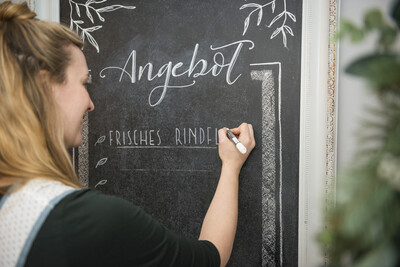 Angebot
FRISCHES RINDF